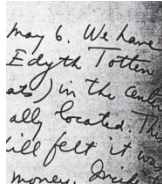 May 6. We have
Edyth Totten
ats) in the cente
ally located. Th
ill felt it wa
money.